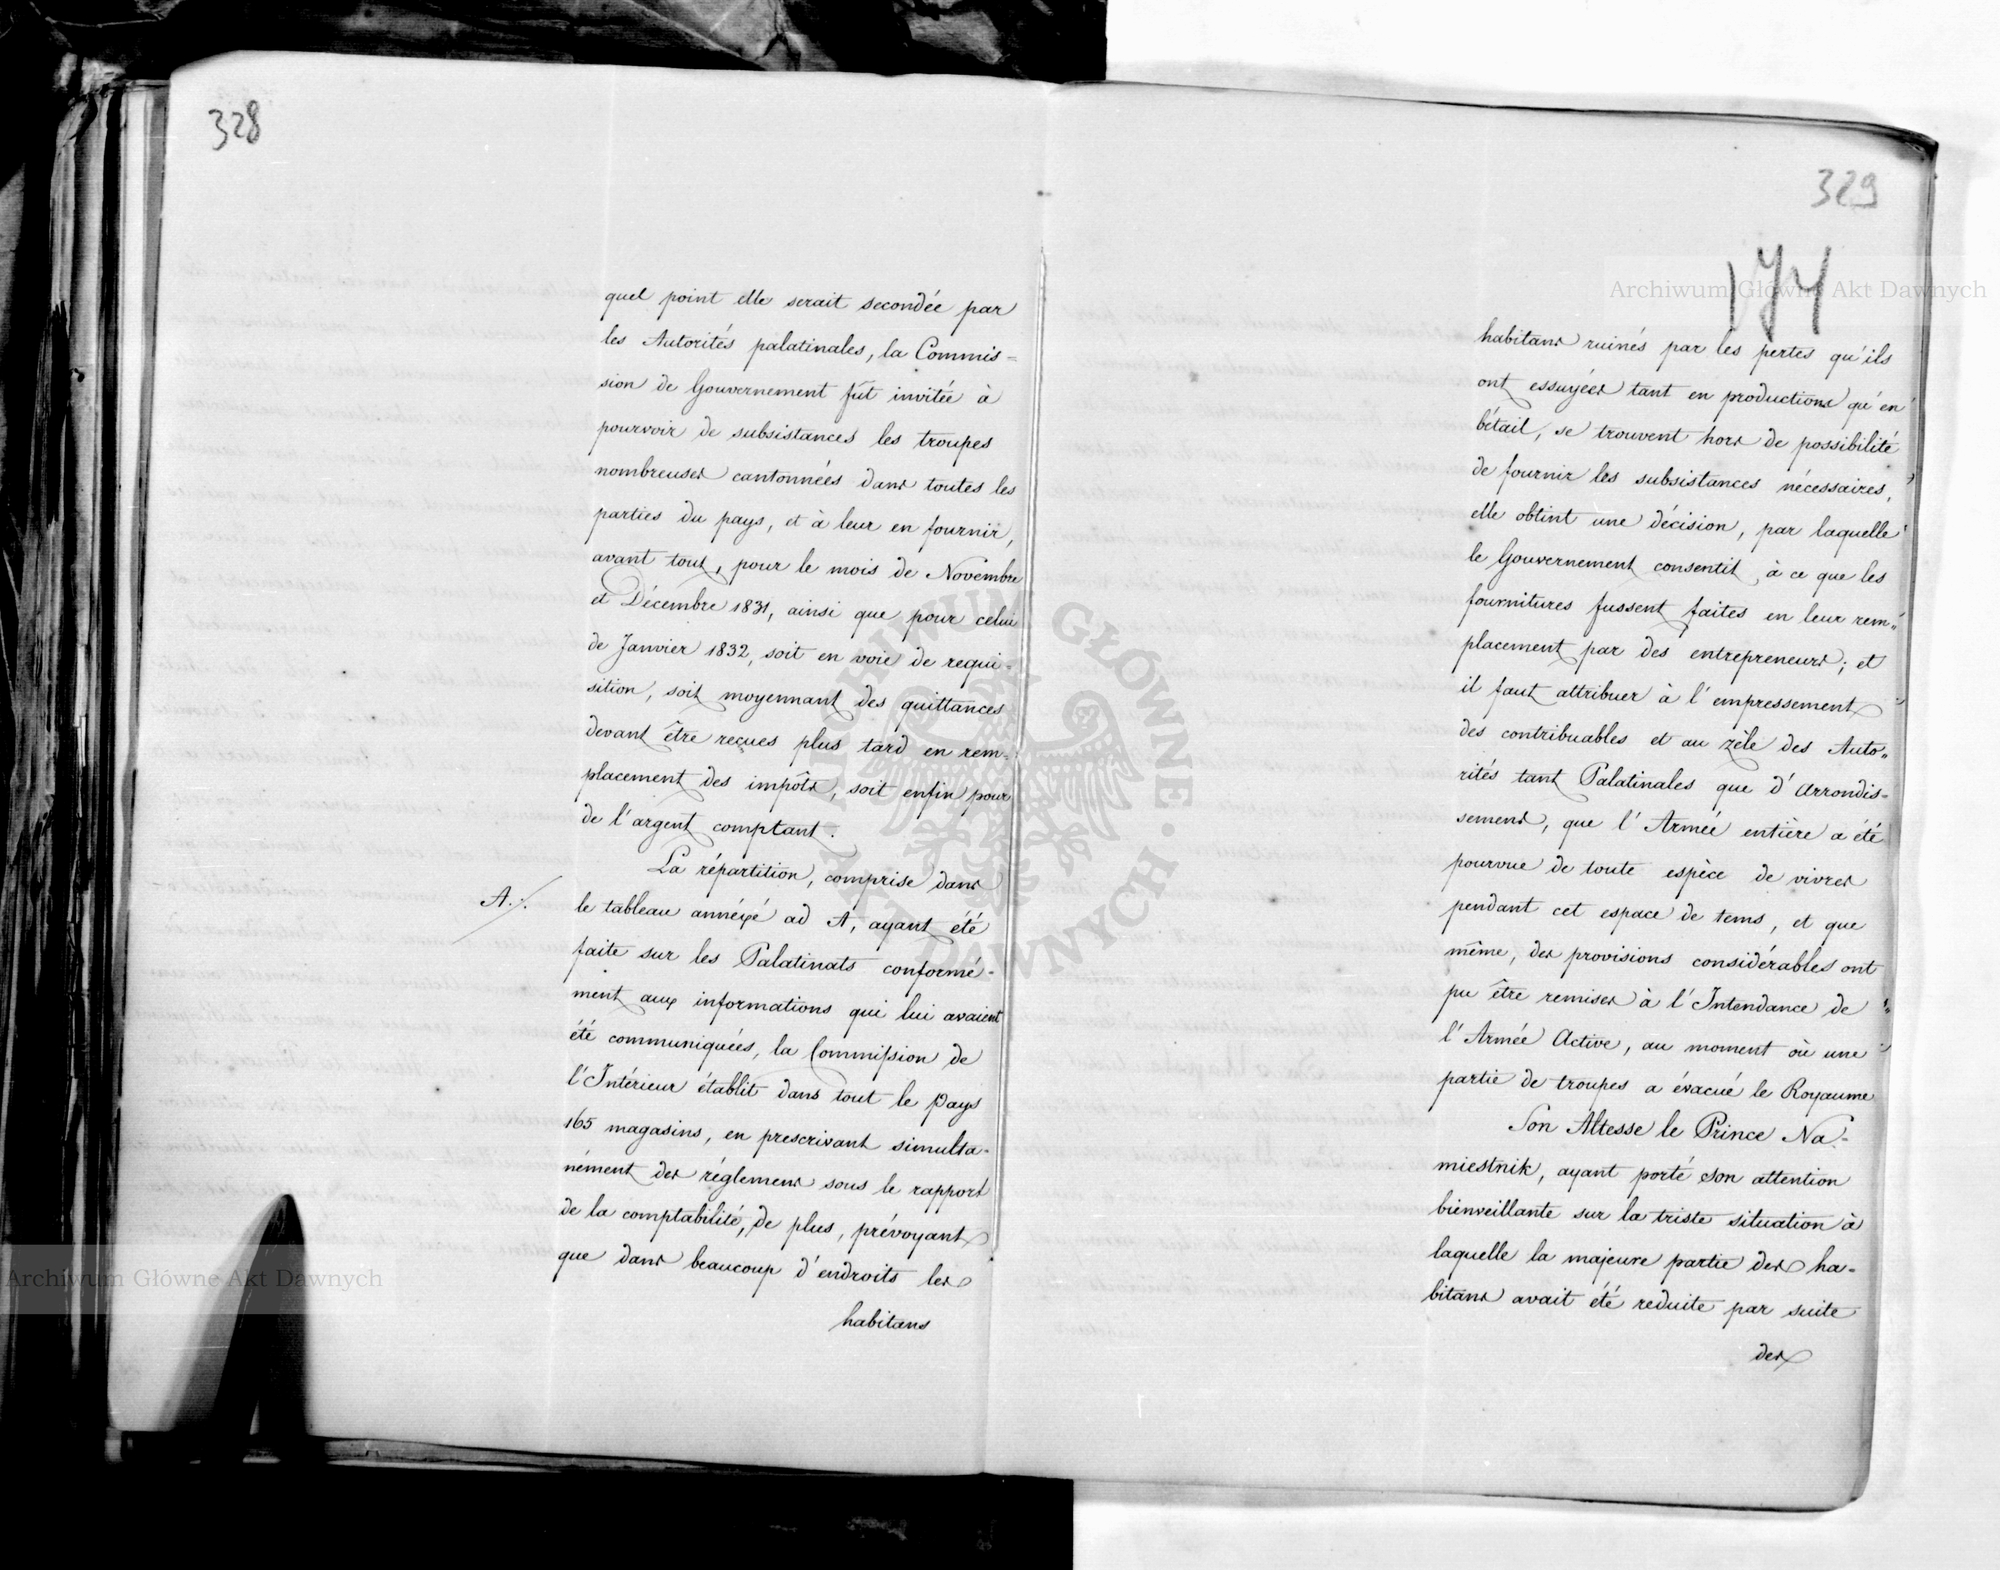 328
quel point elle serait secondée par
les Autorités palatinales, la Commis=
sion de Gouvernement fût invitée à
pourvoir de subsistances les troupes
nombreuses cantonnées dans toutes les
parties du pays, et à leur en fournir,
avant tout, pour le mois de Novembre
et Décembre 1831, ainsi que pour celui
de Janvier 1832, soit en voie de requi-
sition, soit moyennant des quittances
devant être reçues plus tard en rem-
placement des impôts, soit enfin pour
de l'argent comptant.
La répartition, comprise dans
A./.
le tableau annéxé ad A, ayant été
faite sur les Palatinats conformé-
ment aux informations qui lui avaient
été communiquées, la Commission de
l'Intérieur établit dans tout le pays
165 magasins, en prescrivant simulta-
nément des réglemens sous le rapport
de la comptabilité, de plus, prévoyant
que dans beaucoup d'endroits les
habitans
329
174
habitans ruinés par les pertes qu'ils
ont essuyées tant en productions qu'en
bétail, se trouvent hors de possibilité
de fournir les subsistances nécessaires,
elle obtint une décision, par laquelle
le Gouvernement consentit, à ce que les
fournitures fussent faites en leur rem„
placement par des entrepreneurs; et
il faut attribuer à l'empressement
des contribuables et au zèle des Auto„
rités tant Palatinales que d'Arrondis=
semens, que l'Armée entière a été
pourvue de toute espèce de vivres
pendant cet espace de tems, et que
même, des provisions considérables ont
pu être remises à l'Intendance de
l'Armée Active, au moment où une
partie de troupes a évacué le Royaume
Son Altesse le Prince Na-
miestnik, ayant porté son attention
bienveillante sur la triste situation à
laquelle la majeure partie des ha-
bitans avait été reduite par suite
des
Archiwum Główne Akt Dawnych
Archiwum Główne Akt Dawnych
ARCHIWUM GŁÓWNE AKT DAWNYCH